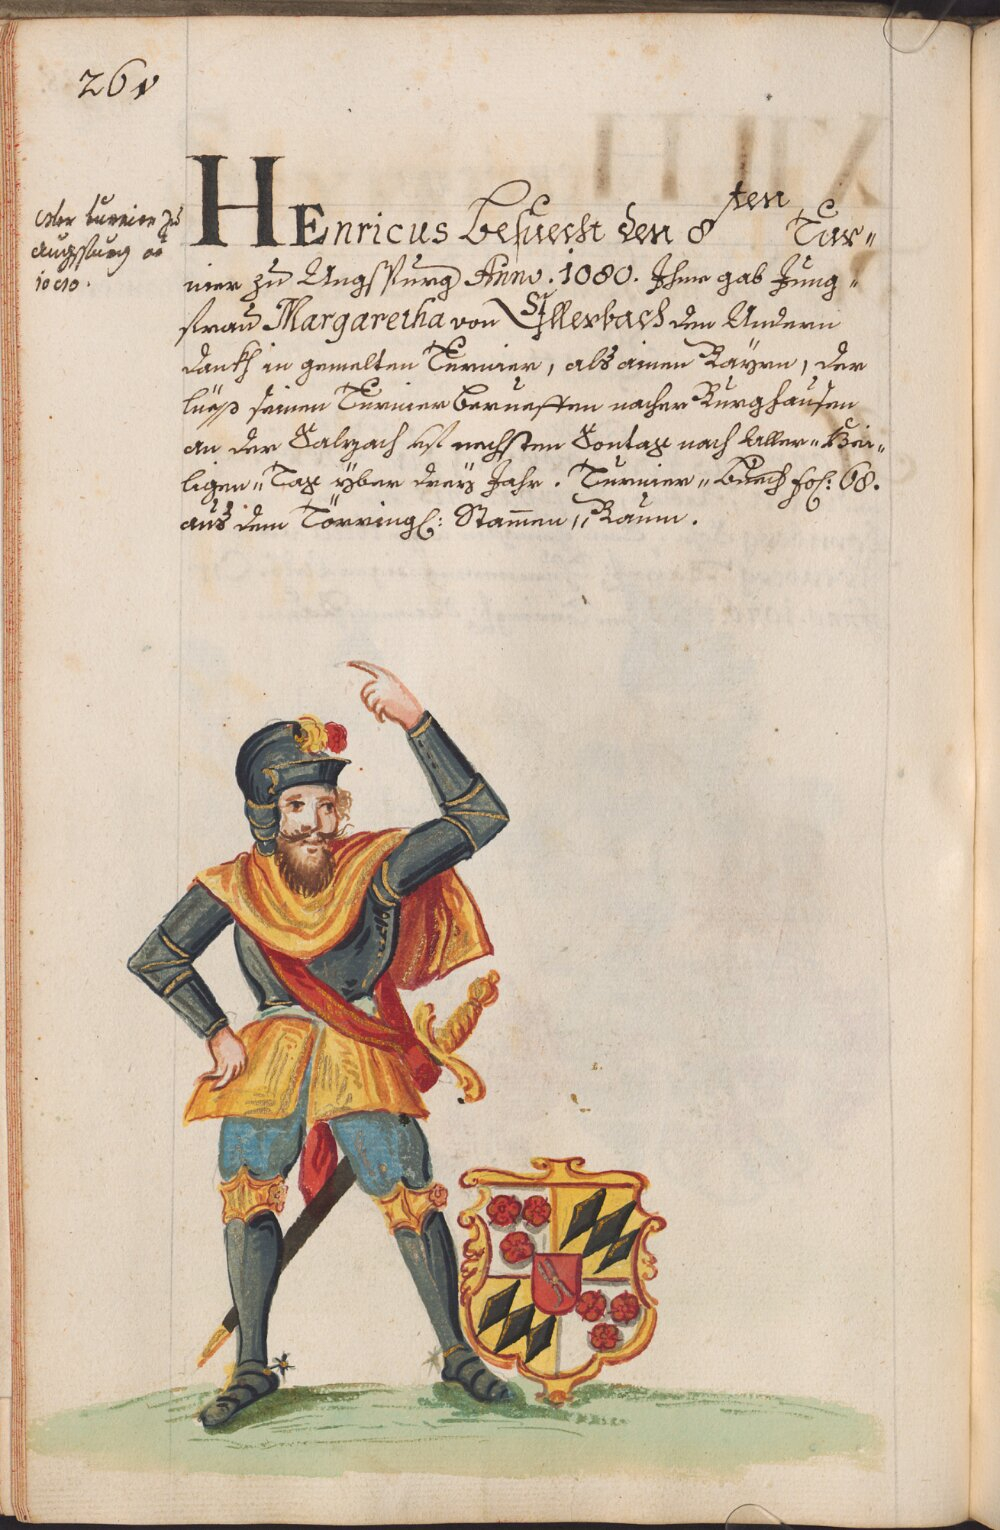 26v
Der turnier zu
Augspurg ao
1080.
HEnricus besuecht den 8ten Tur„
nier zu Augspurg Anno. 1080. Ihme gab Jung„
frau Margaretha von Ellerbach den Andern
dankh in gemelten Turnier, als ainen Bayrn, der
lüeß seinen Turnier berueffen nacher Burghausen
an der Salzach auf nechsten Sontag nach Aller„ Hei„
ligen„ Tag yber dreÿ Jahr. Turnier„ buech fol: 68.
aus dem Törringl: Stam̄en„ Baum.